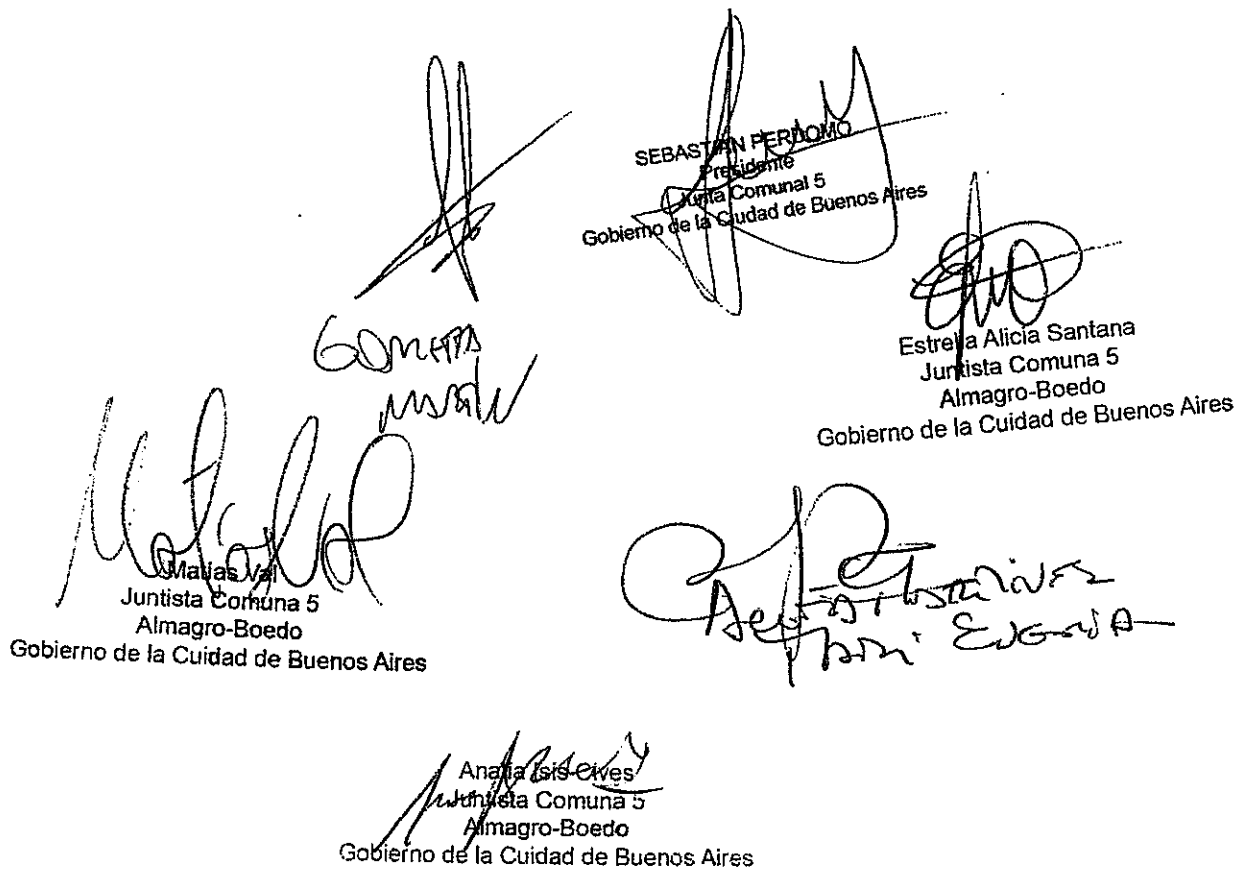 SEBASTIAN PERDOMO
Presidente
Junta Comunal 5
Gobierno de la Ciudad de Buenos Aires
Estrella Alicia Santana
Juntista Comuna 5
Almagro-Boedo
Gobierno de la Cuidad de Buenos Aires
Matias Val
Juntista Comuna 5
Almagro-Boedo
Gobierno de la Cuidad de Buenos Aires
Analia Isis Cives
Juntista Comuna 5
Almagro-Boedo
Gobierno de la Cuidad de Buenos Aires